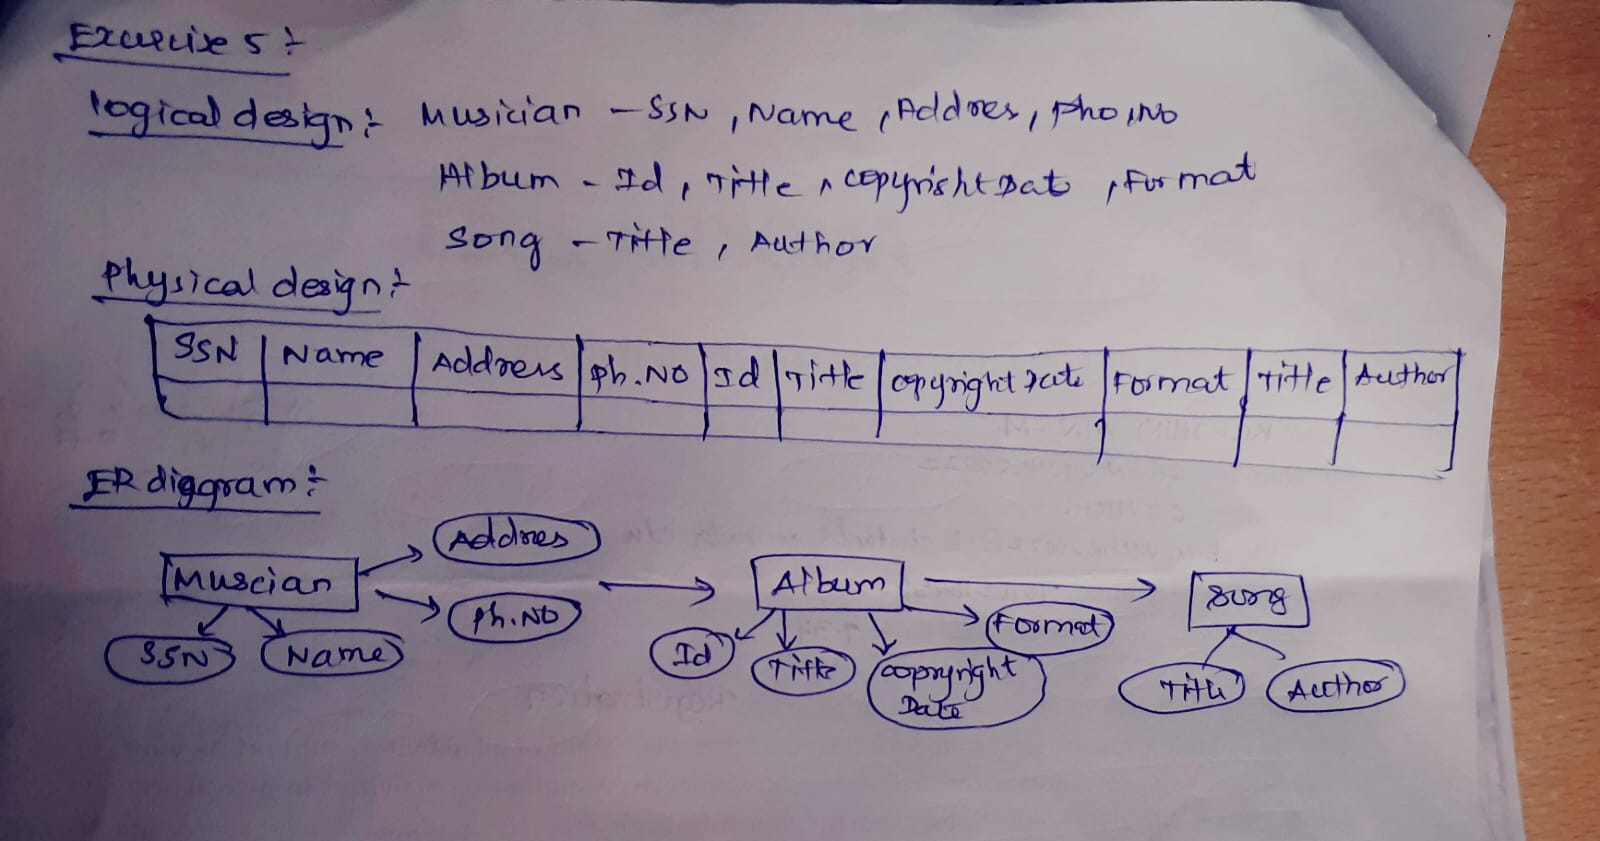 Exercise 5 :-
logical design :- Musician - SSN , Name , Addres , Pho.No
Album - Id , Title , Copyright Dat , Format
Song - Title , Author
Physical design :-
SSN Name Address Ph.No Id Title Copyright Date Format Title Author
ER diagram :-
Addres
Muscian Album Song
Ph.No Format
SSN Name Id Title Copyright Title Author
Date